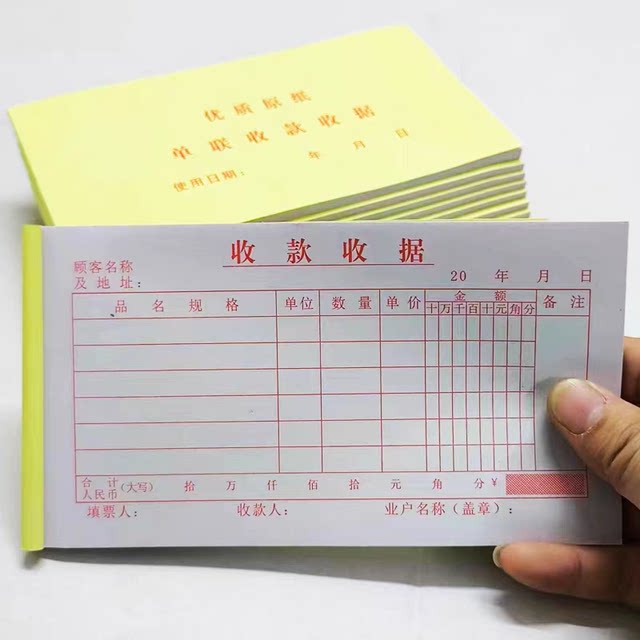 优质原纸
单联收款收据
使用日期： 年 月 日
收款收据
顾客名称
及地址：
20 年 月 日
品名规格 单位 数量 单价 金额 备注
十万千百十元角分
合计
人民币（大写） 拾 万 仟 佰 拾 元 角 分 ¥
填票人： 收款人： 业户名称（盖章）：